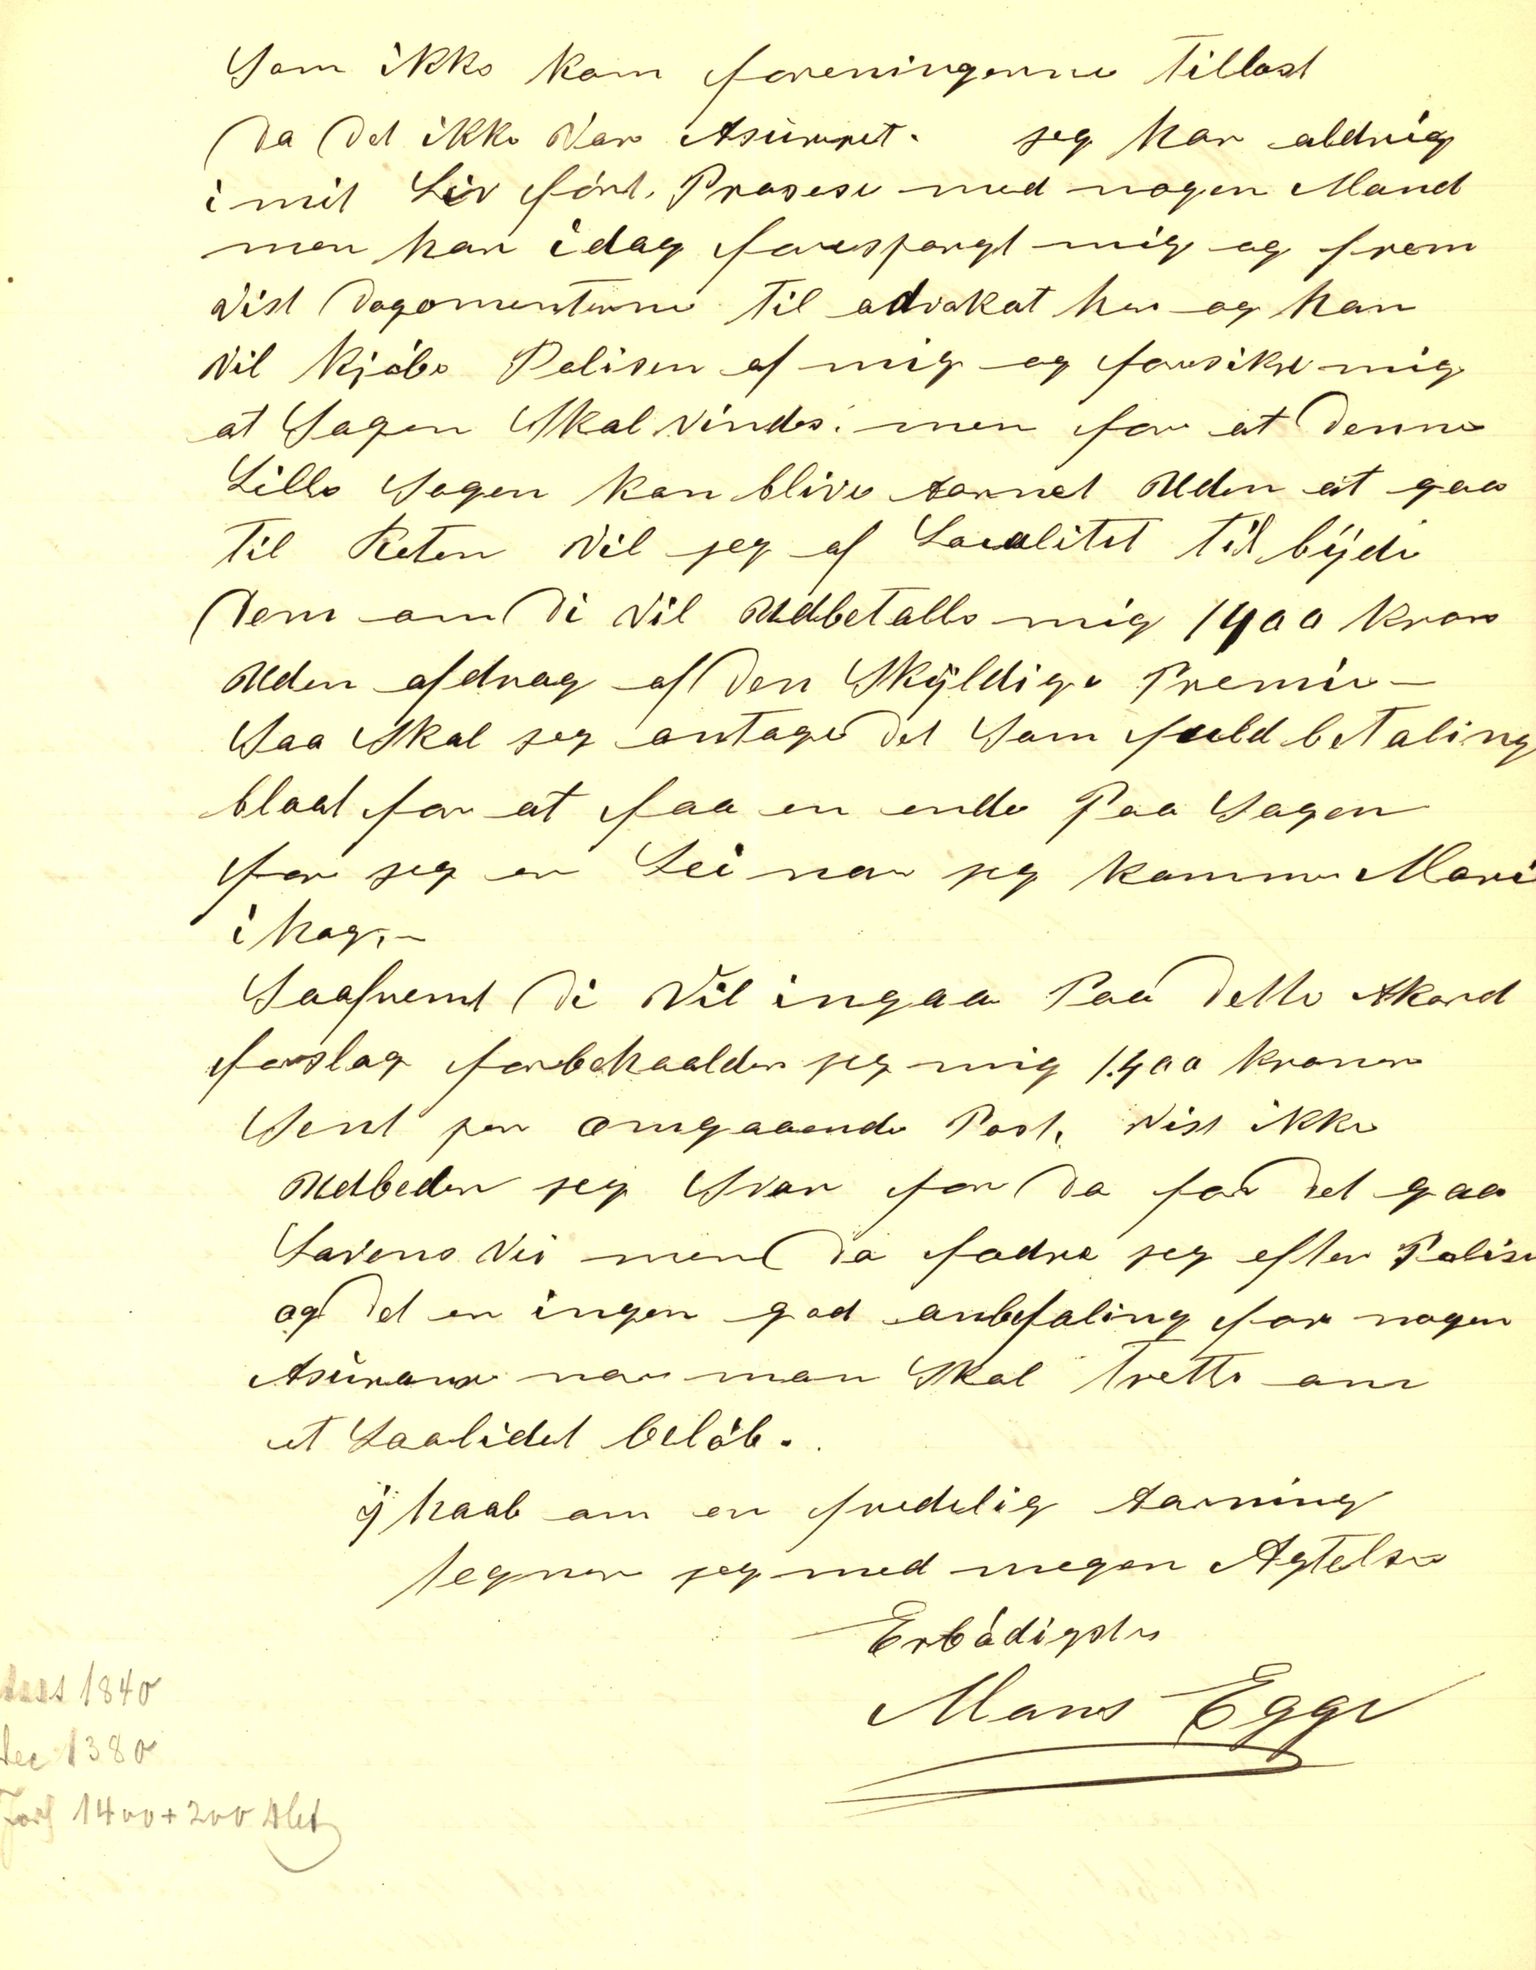 Som ikke kom foreningerne Tillast
da det ikke var Asurert. jeg har aldrig
i mit Liv ført. Prosese med nogen Mand
men har idag forespørgt mig og frem
vist dogomenterne til advokat her og han
vil kjøbe Polisen af mig og forsikre mig
at Sagen Skal vindes. men for at denne
Lille Sagen kan blive Aornet Uden at gaa
til Reten vil jeg af Loealitet til býde
dem om di vil Udbetalle mig 1400 krone
Uden afdrag af den Skýldige Premie —
Saa Skal jeg antage det Som fuld betaling
blaat for at faa en ende Paa Sagen
for jeg er Lei nar jeg kommer Mari
i hog. —
Saafremt di vil ingaa Paa dette Akord
forslag forbehaalder jeg mig 1400 kroner
Sent per omgaaende Post. vist ikke
Udbeder jeg Svar for da for det gaa
Lovens vei men da fodre jeg efter Polise
og det er ingen god anbefaling for nogen
Asuranse nar man Skal trette om
et Saalidet beløb.
ÿ haab om en fredelig Aorning
tegner jeg med megen Agtelse
Erbødigste
Mons Egge
1840
1380
1400 + 200